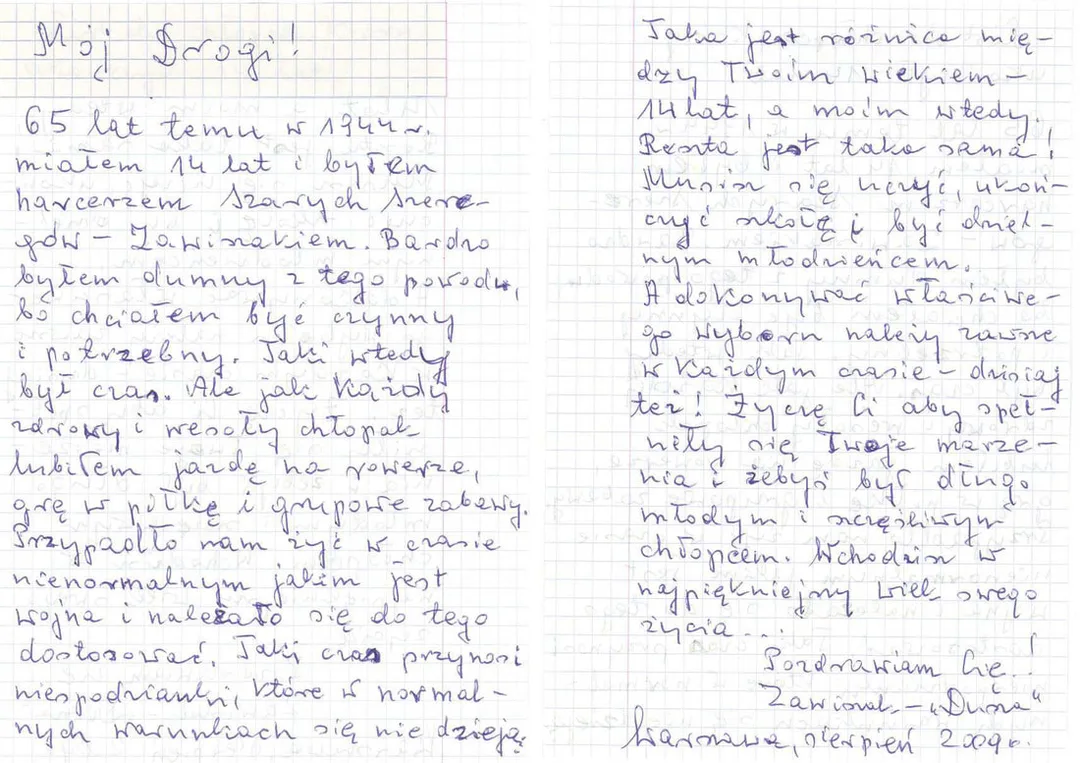 Mój Drogi!
65 lat temu w 1944 r.
miałem 14 lat i byłem
harcerzem Szarych Szere-
gów – Zawiszakiem. Bardzo
byłem dumny z tego powodu,
bo chciałem być czynny
i potrzebny. Taki wtedy
był czas. Ale jak każdy
zdrowy i wesoły chłopak
lubiłem jazdę na rowerze,
grę w piłkę i grupowe zabawy.
Przypadło nam żyć w czasie
nienormalnym jakim jest
wojna i należało się do tego
dostosować. Taki czas przynosi
niespodzianki, które w normal-
nych warunkach się nie dzieją.
Taka jest różnica mię-
dzy Twoim wiekiem –
14 lat, a moim wtedy.
Reszta jest taka sama!
Musisz się uczyć, ukoń-
czyć szkołę i być dziel-
nym młodzieńcem.
A dokonywać właściwe-
go wyboru należy zawsze
w każdym czasie – dzisiaj
też! Życzę Ci aby speł-
niły się Twoje marze-
nia i żebyś był długo
młodym i szczęśliwym
chłopcem. Wchodzisz w
najpiękniejszy wiek swego
życia...!
Pozdrawiam Cię..
Zawiszak – „Dusza"
Warszawa, sierpień 2009 r.